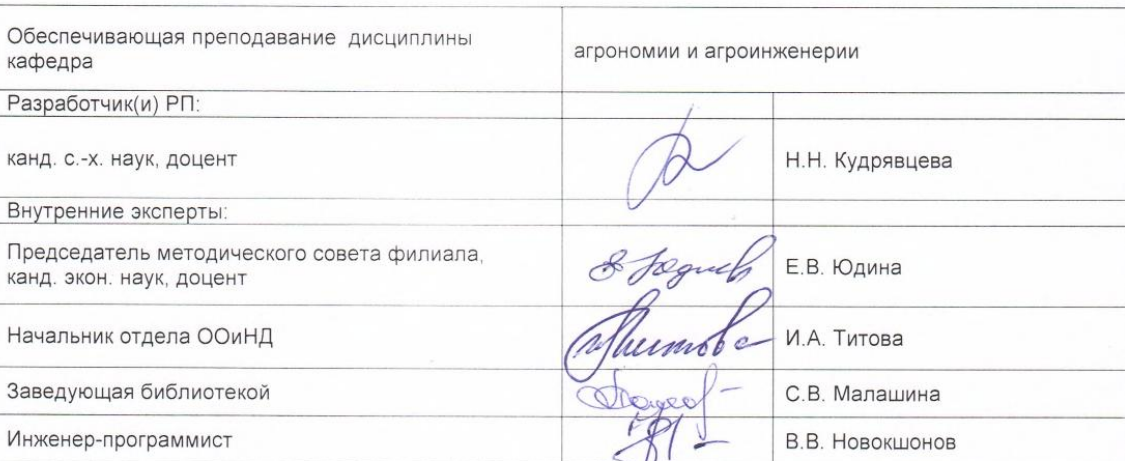 Обеспечивающая преподавание дисциплины
кафедра
агрономии и агроинженерии
Разработчик(и) РП:
канд. с.-х. наук, доцент
Н.Н. Кудрявцева
Внутренние эксперты:
Председатель методического совета филиала,
канд. экон. наук, доцент
Е.В. Юдина
Начальник отдела ООиНД
И.А. Титова
Заведующая библиотекой
С.В. Малашина
Инженер-программист
В.В. Новокшонов